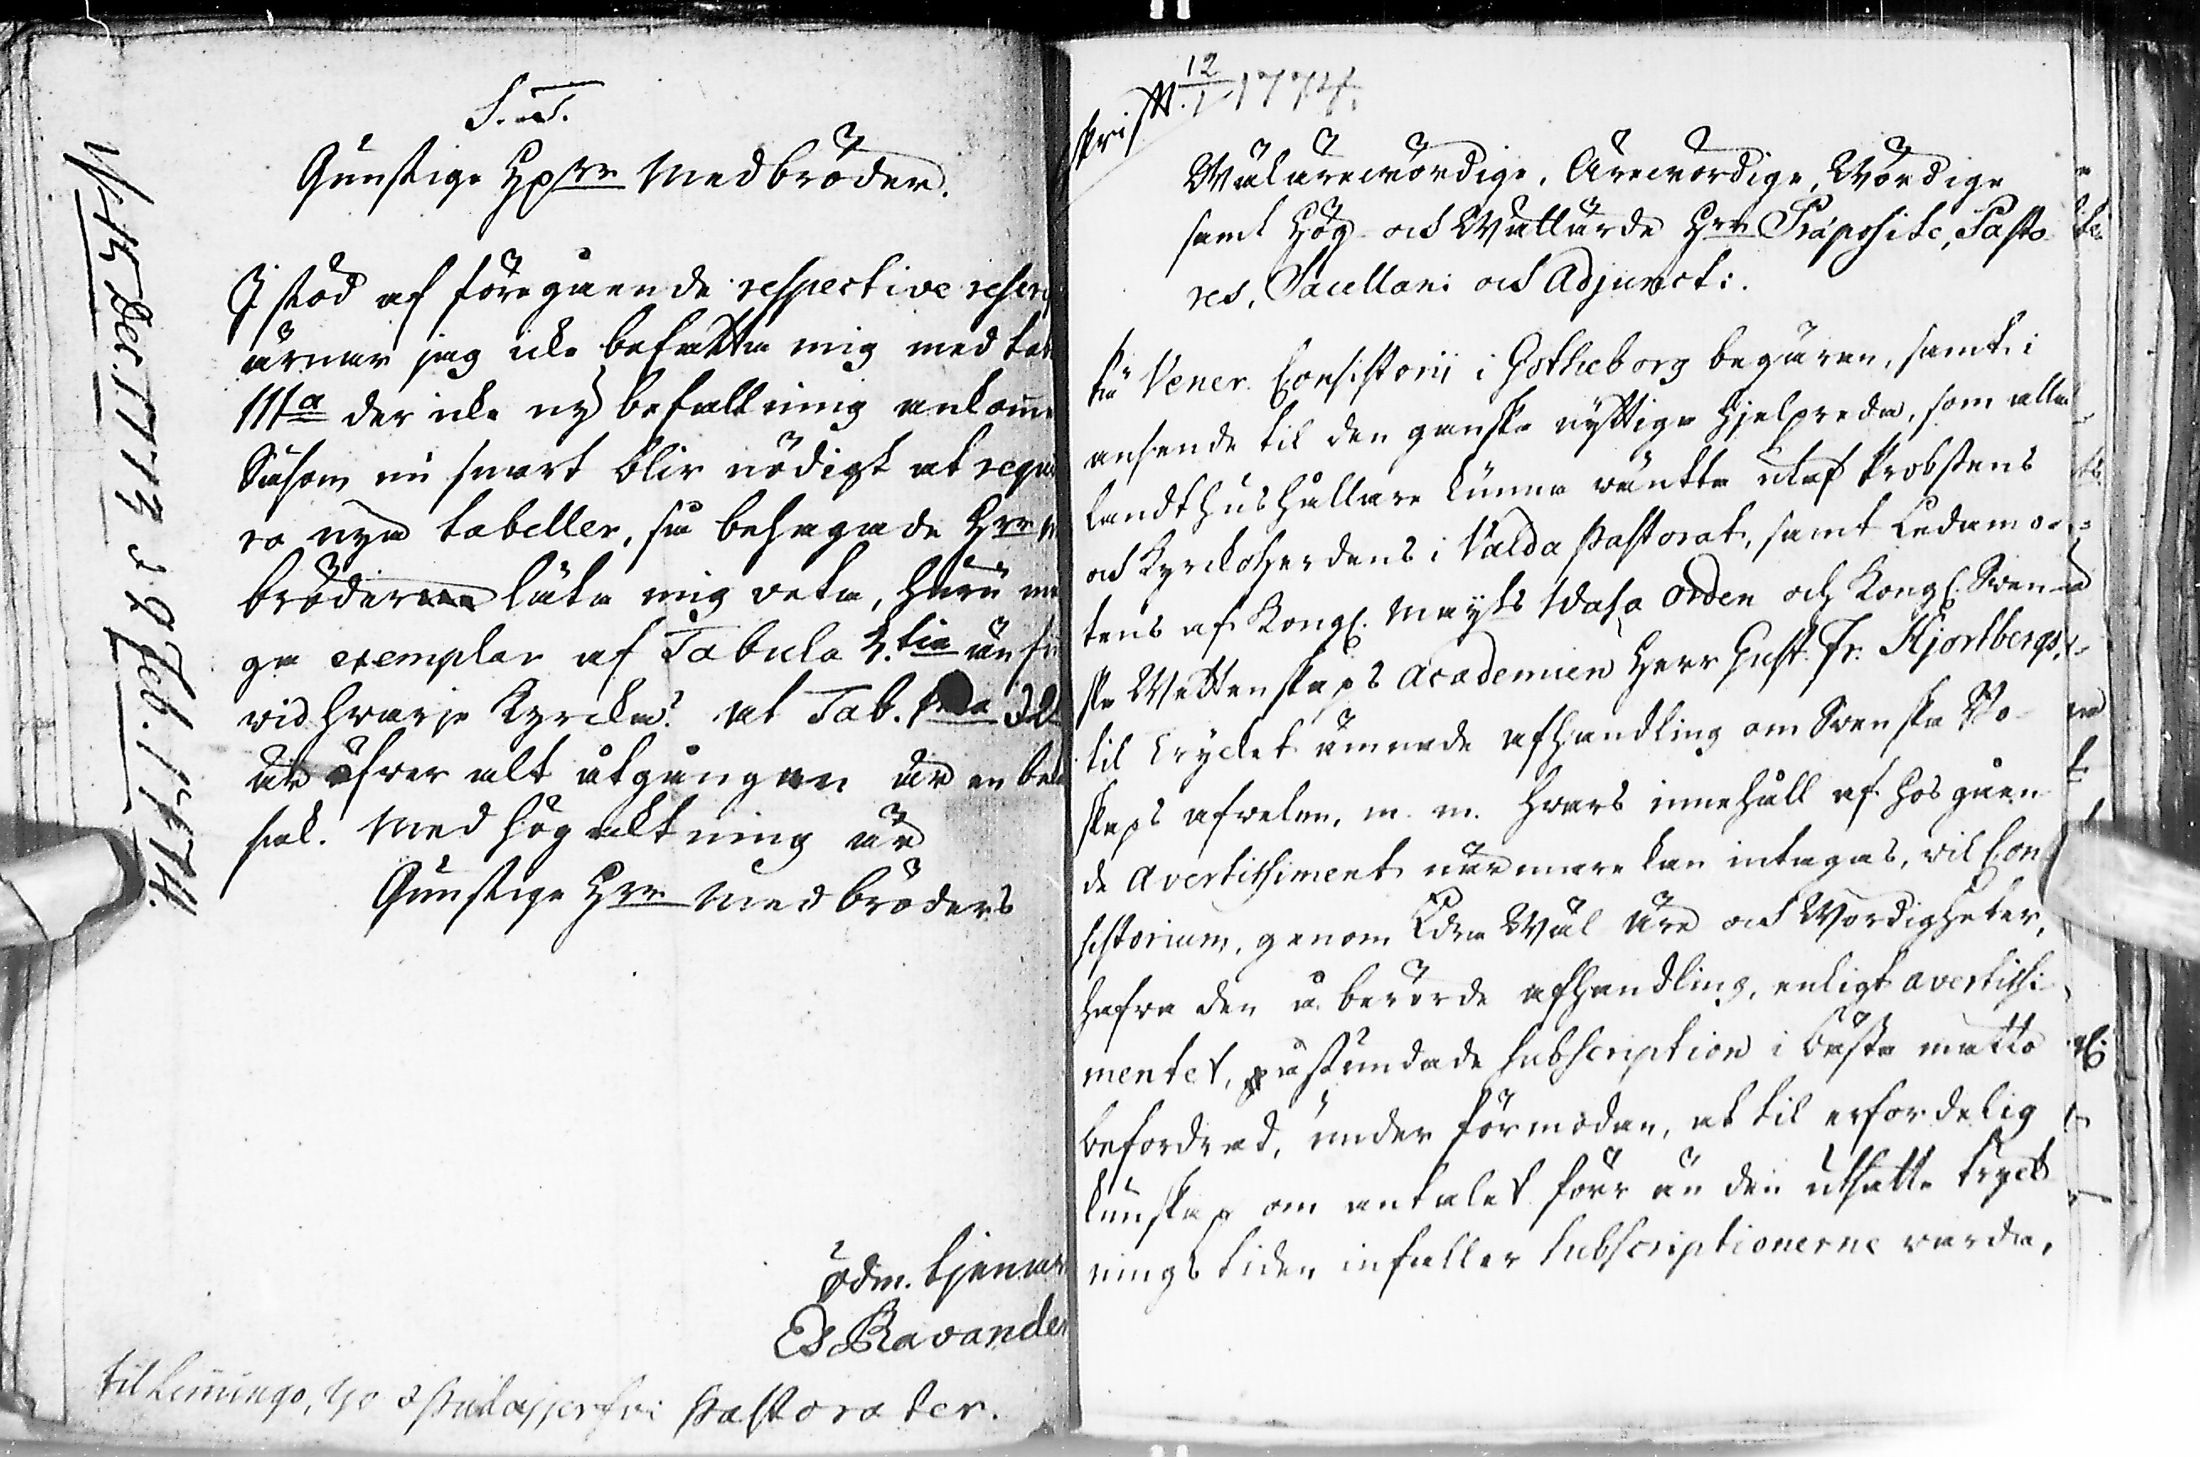 S. T.
Gunstige Herrr Medbröder.
I stöd af föregående respective
ärnar jag icke befatta mig med
IIIa der icke ny befallning
Såsom nu snart blir nödigt at
ra nya tabeller, så behagade Hrr
bröder låta mig veta, huru
ga exemplar af Tabula 3.tia
vid hvarje Kyrcka? at Tab.
är öfver alt utgången är en
sak. Med högacktning är
Gunstige Hrr Medbröders
ödm. tjenare
Es. Ravander
til Limingo, Ijo & Pudasjerfvi Pastorater.
Dec. 1773 & 9 Feb. 1774.
12/1 1774.
Välärevördige, Ärevördige, Vördige
samt Hög- och Vällärde Hrr Præposite, Pasto-
res, Sacellani och Adjuncti.
På Vener. Consistorii i Götheborg begäran, samt i
anseende til den ganska nyttiga hjelpreda, som alla
landthushållare kunna vänta utaf Probstens
och Kyrckoherdens i Valda Pastorat, samt Ledamo-
tens af Kongl. Mayts Wasa Orden och Kongl. Svен-
ska Vettenskaps Academien Herr Gust. Fr. Hjortbergs,
til trycket ämnade afhandling om Svenska Bo-
skaps afvelen, m. m. hvars innehåll af hosgåen-
de Avertissiment närmare kan intagas, vil Con-
sistorium, genom Edra Väl Äre och Vördigheter,
hafva den å berörde afhandling, enligt avertissi-
mentet, åstundade subscription i bästa matto
befordrad, under förmodan, at til erforderlig
kunskap om antalet förr än den utsatte tryck-
nings tiden infaller subscriptionerne varda,